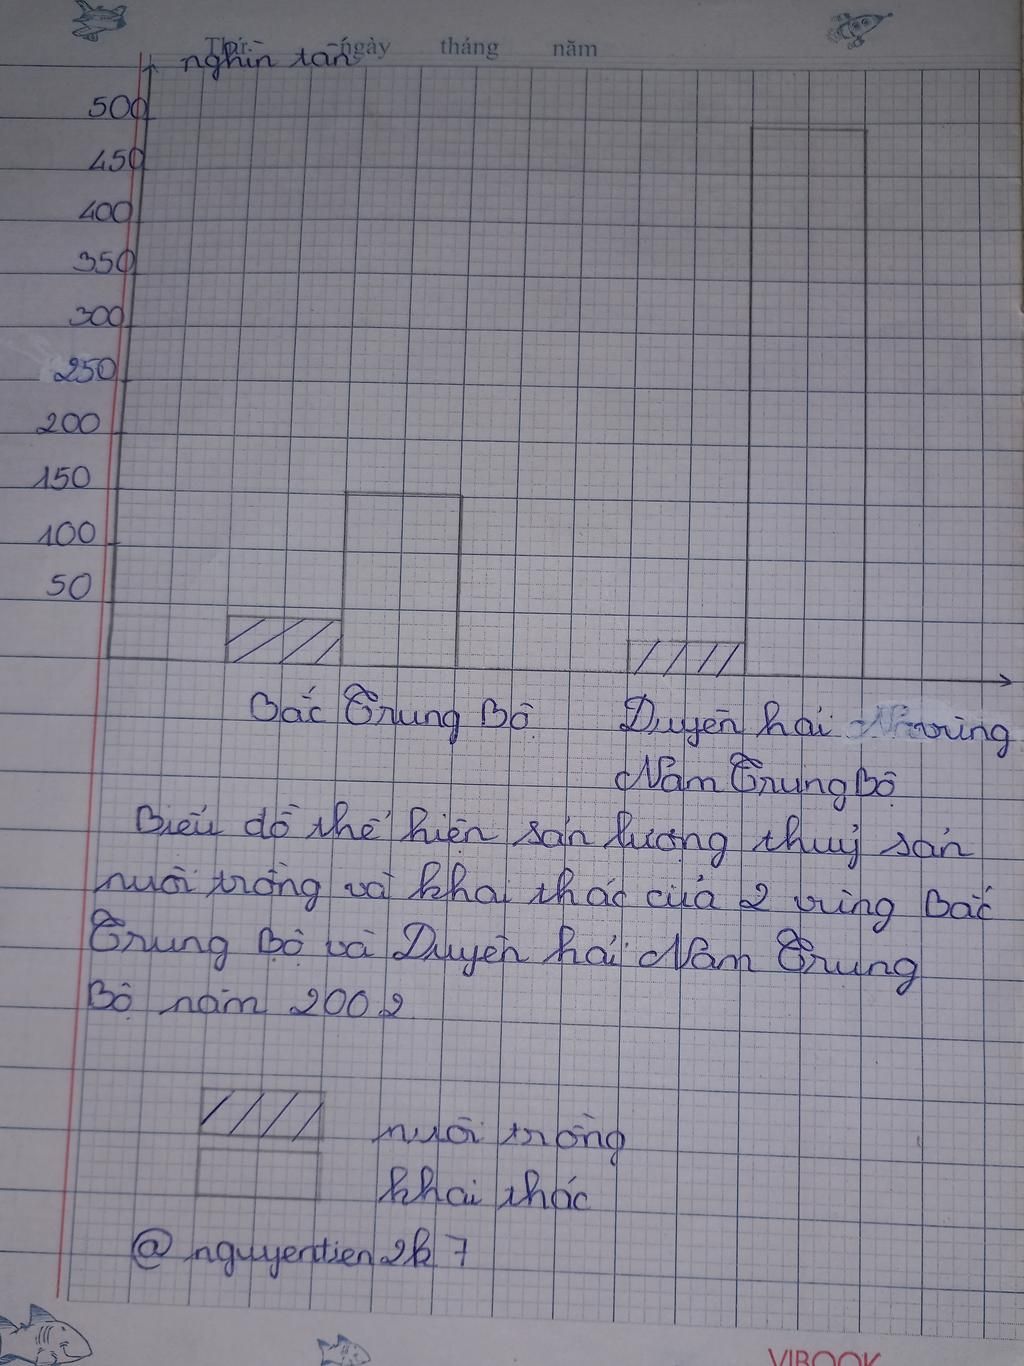 Thứ ngày tháng năm
nghìn tấn
500
450
400
350
300
250
200
150
100
50
Bắc Trung Bộ
Duyên hải
Nam Trung Bộ
Biểu đồ thể hiện sản lượng thuỷ sản
nuôi trồng và khai thác của 2 vùng Bắc
Trung Bộ và Duyên hải Nam Trung
Bộ năm 2002
nuôi trồng
khai thác
@ nguyentien2k7
VIBOOK